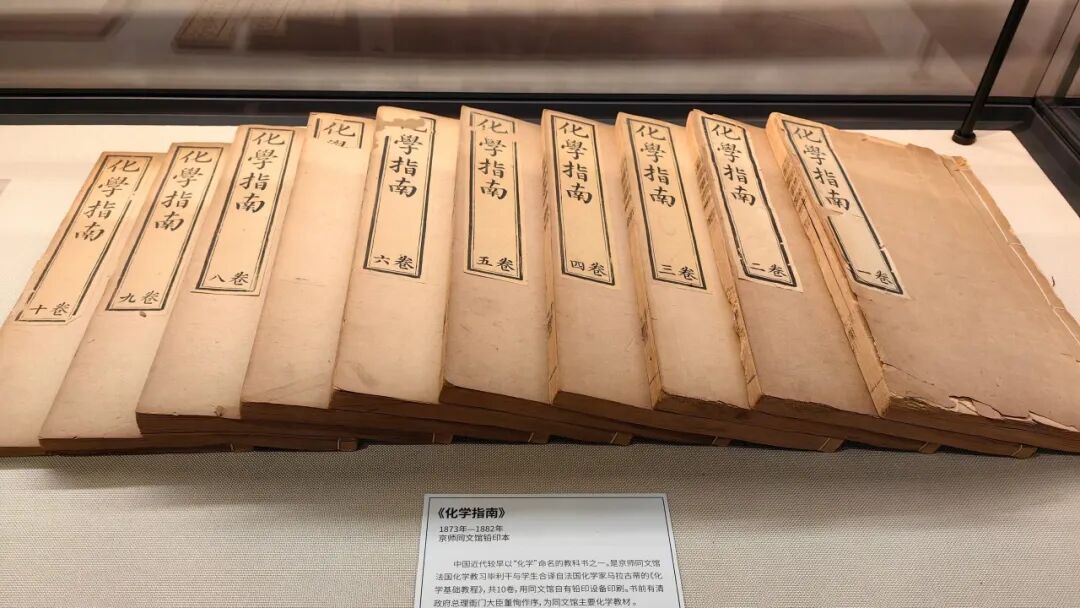 化學指南
卷一
化學指南
卷二
化學指南
卷三
化學指南
卷四
化學指南
卷五
學指南
卷六
化
化學指南
卷八
化學指南
卷九
化學指南
卷十
《化学指南》
1873年—1882年
京师同文馆铅印本
中国近代较早以“化学”命名的教科书之一。是京师同文馆
法国化学教习毕利干与学生合译自法国化学家马拉古蒂的《化
学基础教程》，共10卷，用同文馆自有铅印设备印刷。书前有清
政府总理衙门大臣董恂作序，为同文馆主要化学教材。